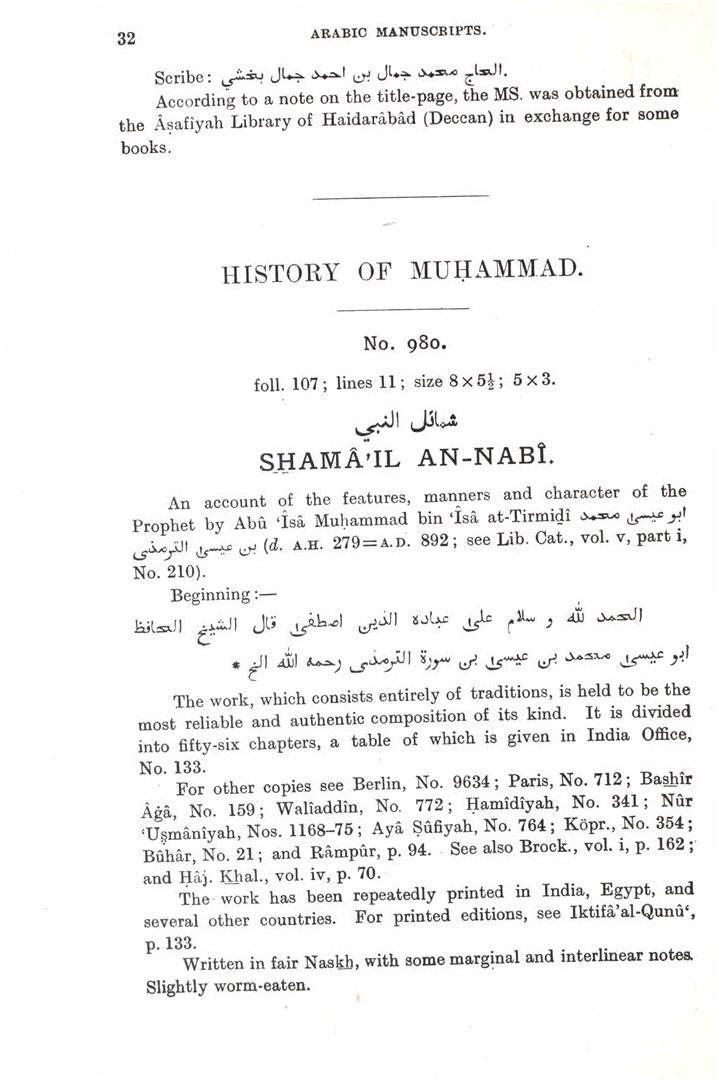 32
ARABIC MANUSCRIPTS.
Scribe: الحاج محمد جمال بن احمد جمال بخشي.
According to a note on the title-page, the MS. was obtained from
the Âṣafîyah Library of Haidarâbâd (Deccan) in exchange for some
books.
HISTORY OF MUḤAMMAD.
No. 980.
foll. 107; lines 11; size 8×5½; 5×3.
شمائل النبي
SHAMÂ'IL AN-NABÎ.
An account of the features, manners and character of the
Prophet by Abû ‘Îsâ Muḥammad bin ‘Îsâ at-Tirmiḏî ابو عيسى محمد
بن عيسى الترمذى (d. A.H. 279=A.D. 892; see Lib. Cat., vol. v, part i,
No. 210).
Beginning:—
الحمد لله و سلام على عباده الذين اصطفى قال الشيخ الحافظ
ابو عيسى محمد بن عيسى بن سورة الترمذى رحمه الله الخ *
The work, which consists entirely of traditions, is held to be the
most reliable and authentic composition of its kind. It is divided
into fifty-six chapters, a table of which is given in India Office,
No. 133.
For other copies see Berlin, No. 9634; Paris, No. 712; Bashîr
Âġâ, No. 159; Walîaddîn, No. 772; Ḥamîdîyah, No. 341; Nûr
‘Uṣmânîyah, Nos. 1168–75; Ayâ Ṣûfiyah, No. 764; Köpr., No. 354;
Bûhâr, No. 21; and Râmpûr, p. 94. See also Brock., vol. i, p. 162;
and Ḥâj. Khal., vol. iv, p. 70.
The work has been repeatedly printed in India, Egypt, and
several other countries. For printed editions, see Iktifâ'al-Qunû‘,
p. 133.
Written in fair Naskh, with some marginal and interlinear notes.
Slightly worm-eaten.